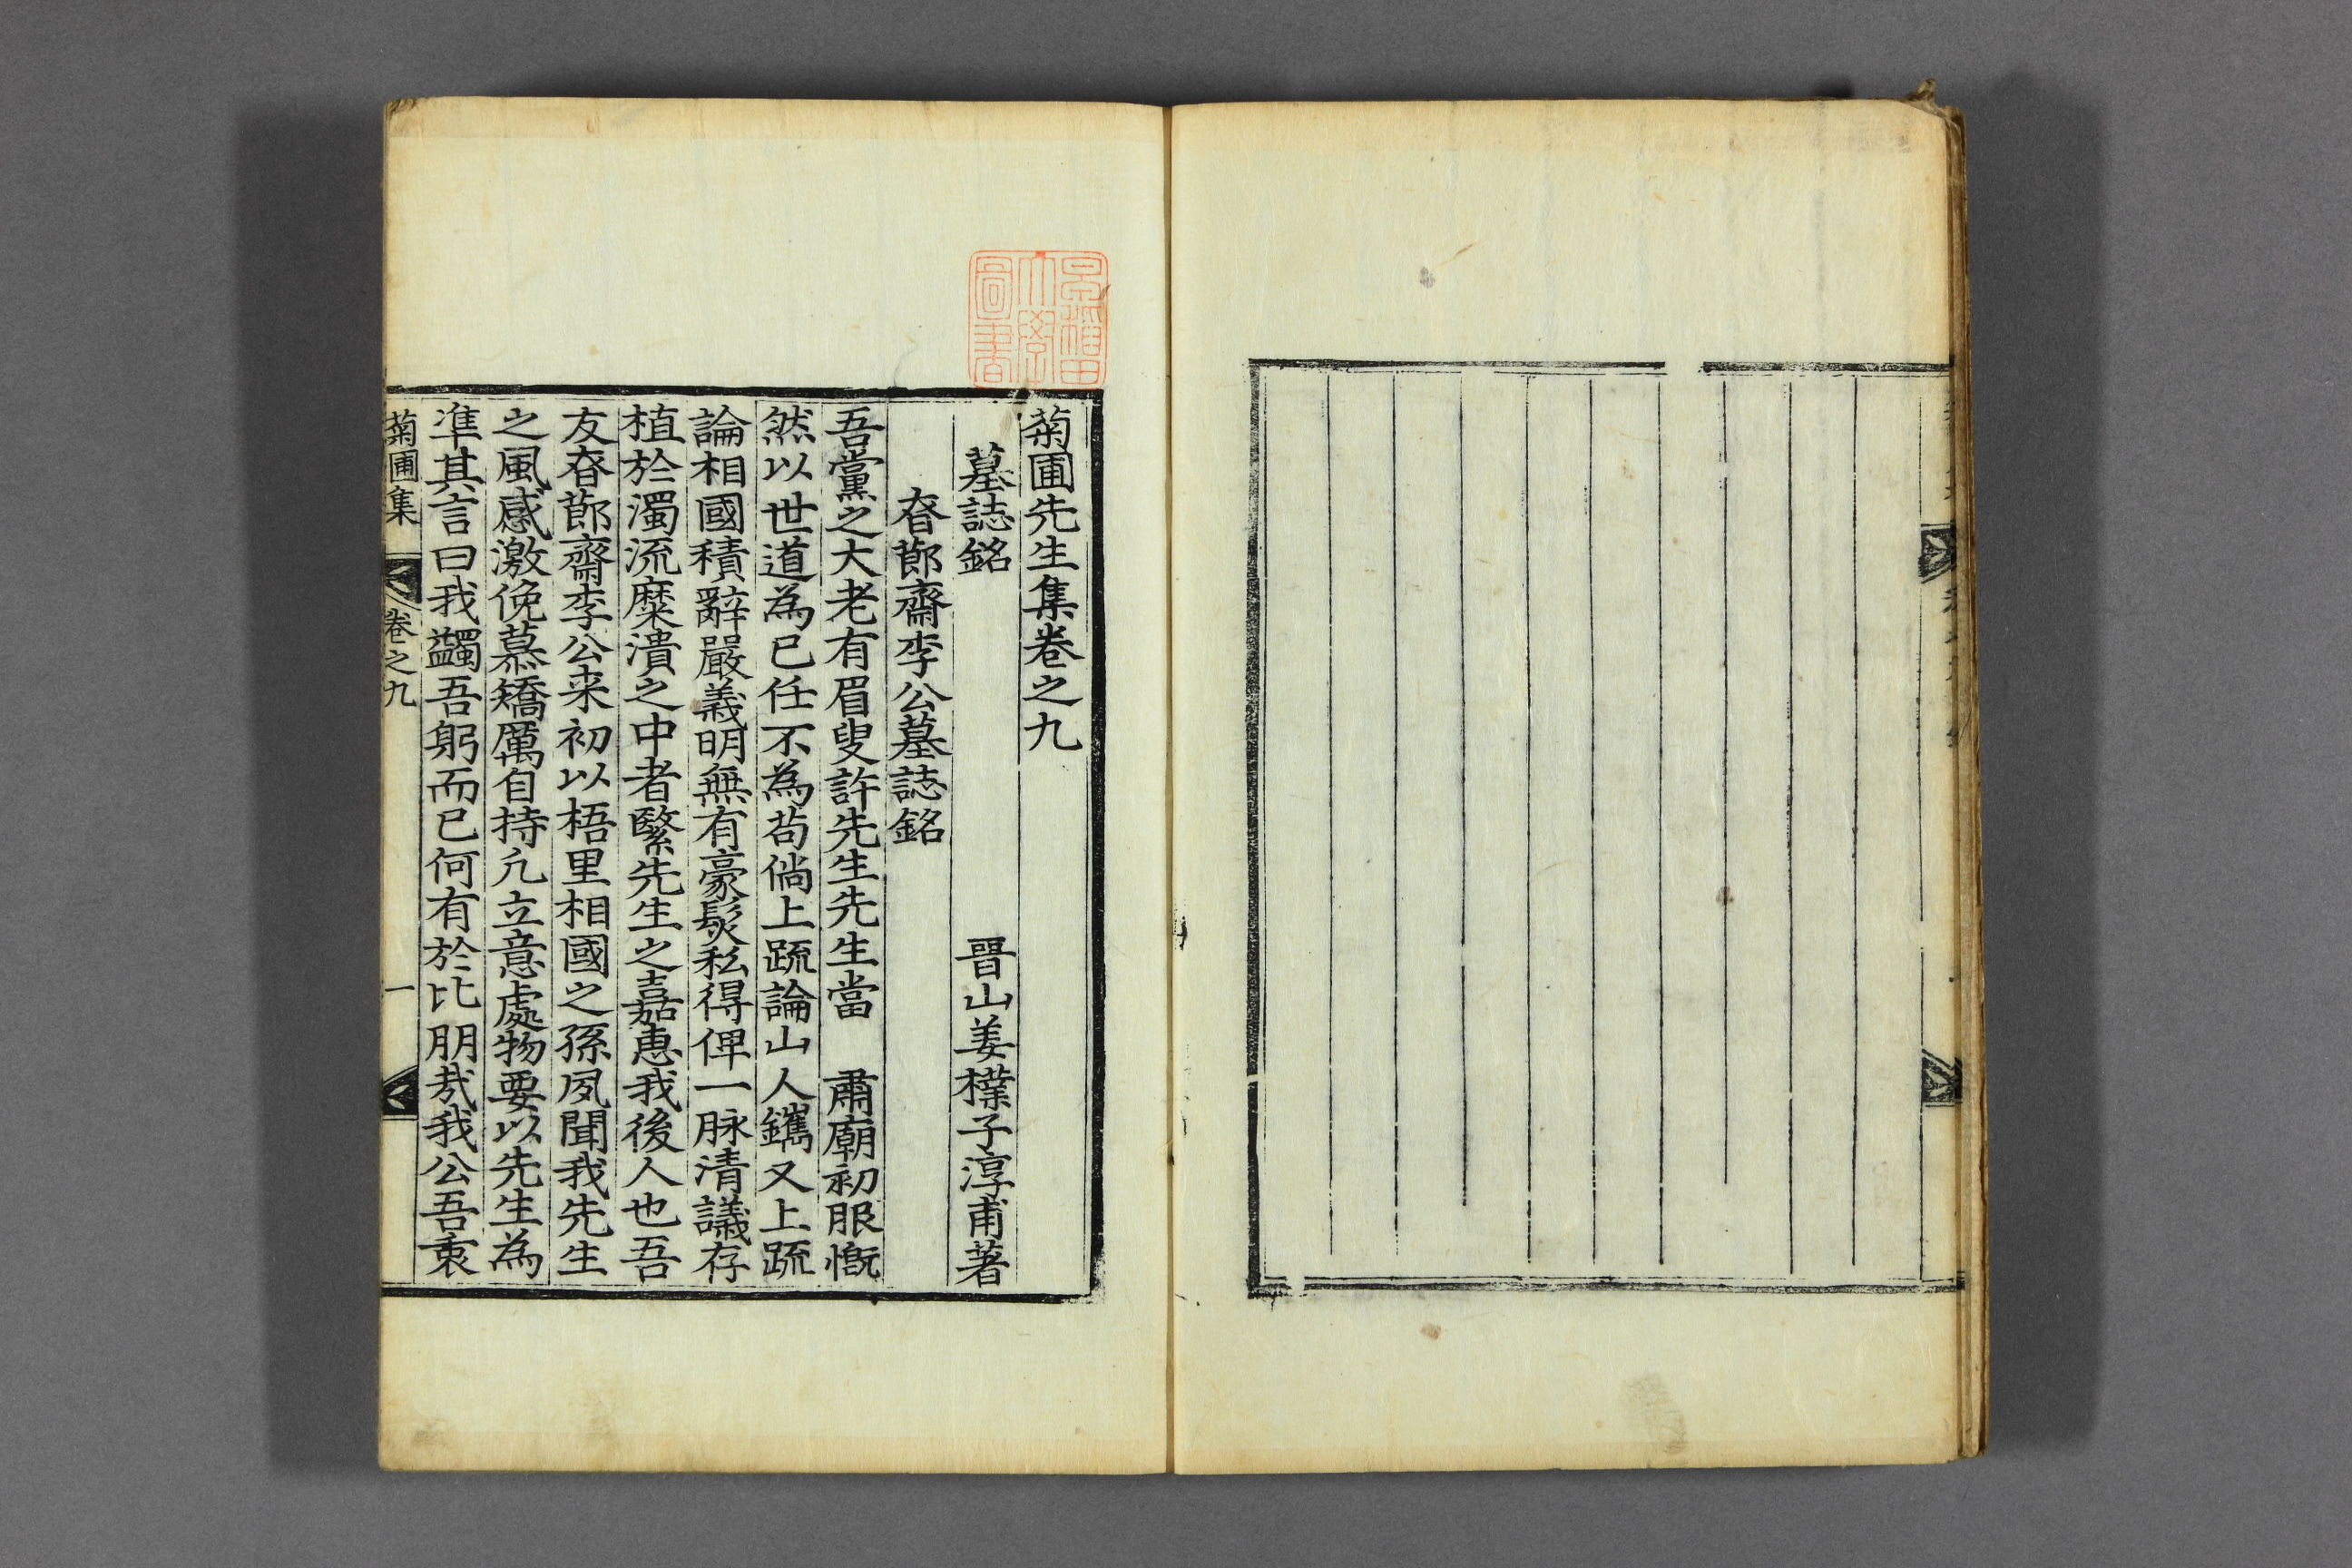 菊圃先生集卷之九
墓誌銘　晉山姜樸子淳甫著
昚節齋李公墓誌銘
吾黨之大老有眉叟許先生先生當　肅廟初服慨
然以世道為已任不為苟倘上䟽論山人鑴又上䟽
論相國積辭嚴義明無有豪髮私得俾一脉清議存
植於濁流糜潰之中者繄先生之嘉惠我後人也吾
友昚節齋李公来初以梧里相國之孫夙聞我先生
之風感激俛慕矯厲自持凢立意處物要以先生為
準其言曰我蠲吾躬而已何有於比朋㢤我公吾衷
菊圃集　卷之九　一
早稻田大學圖書